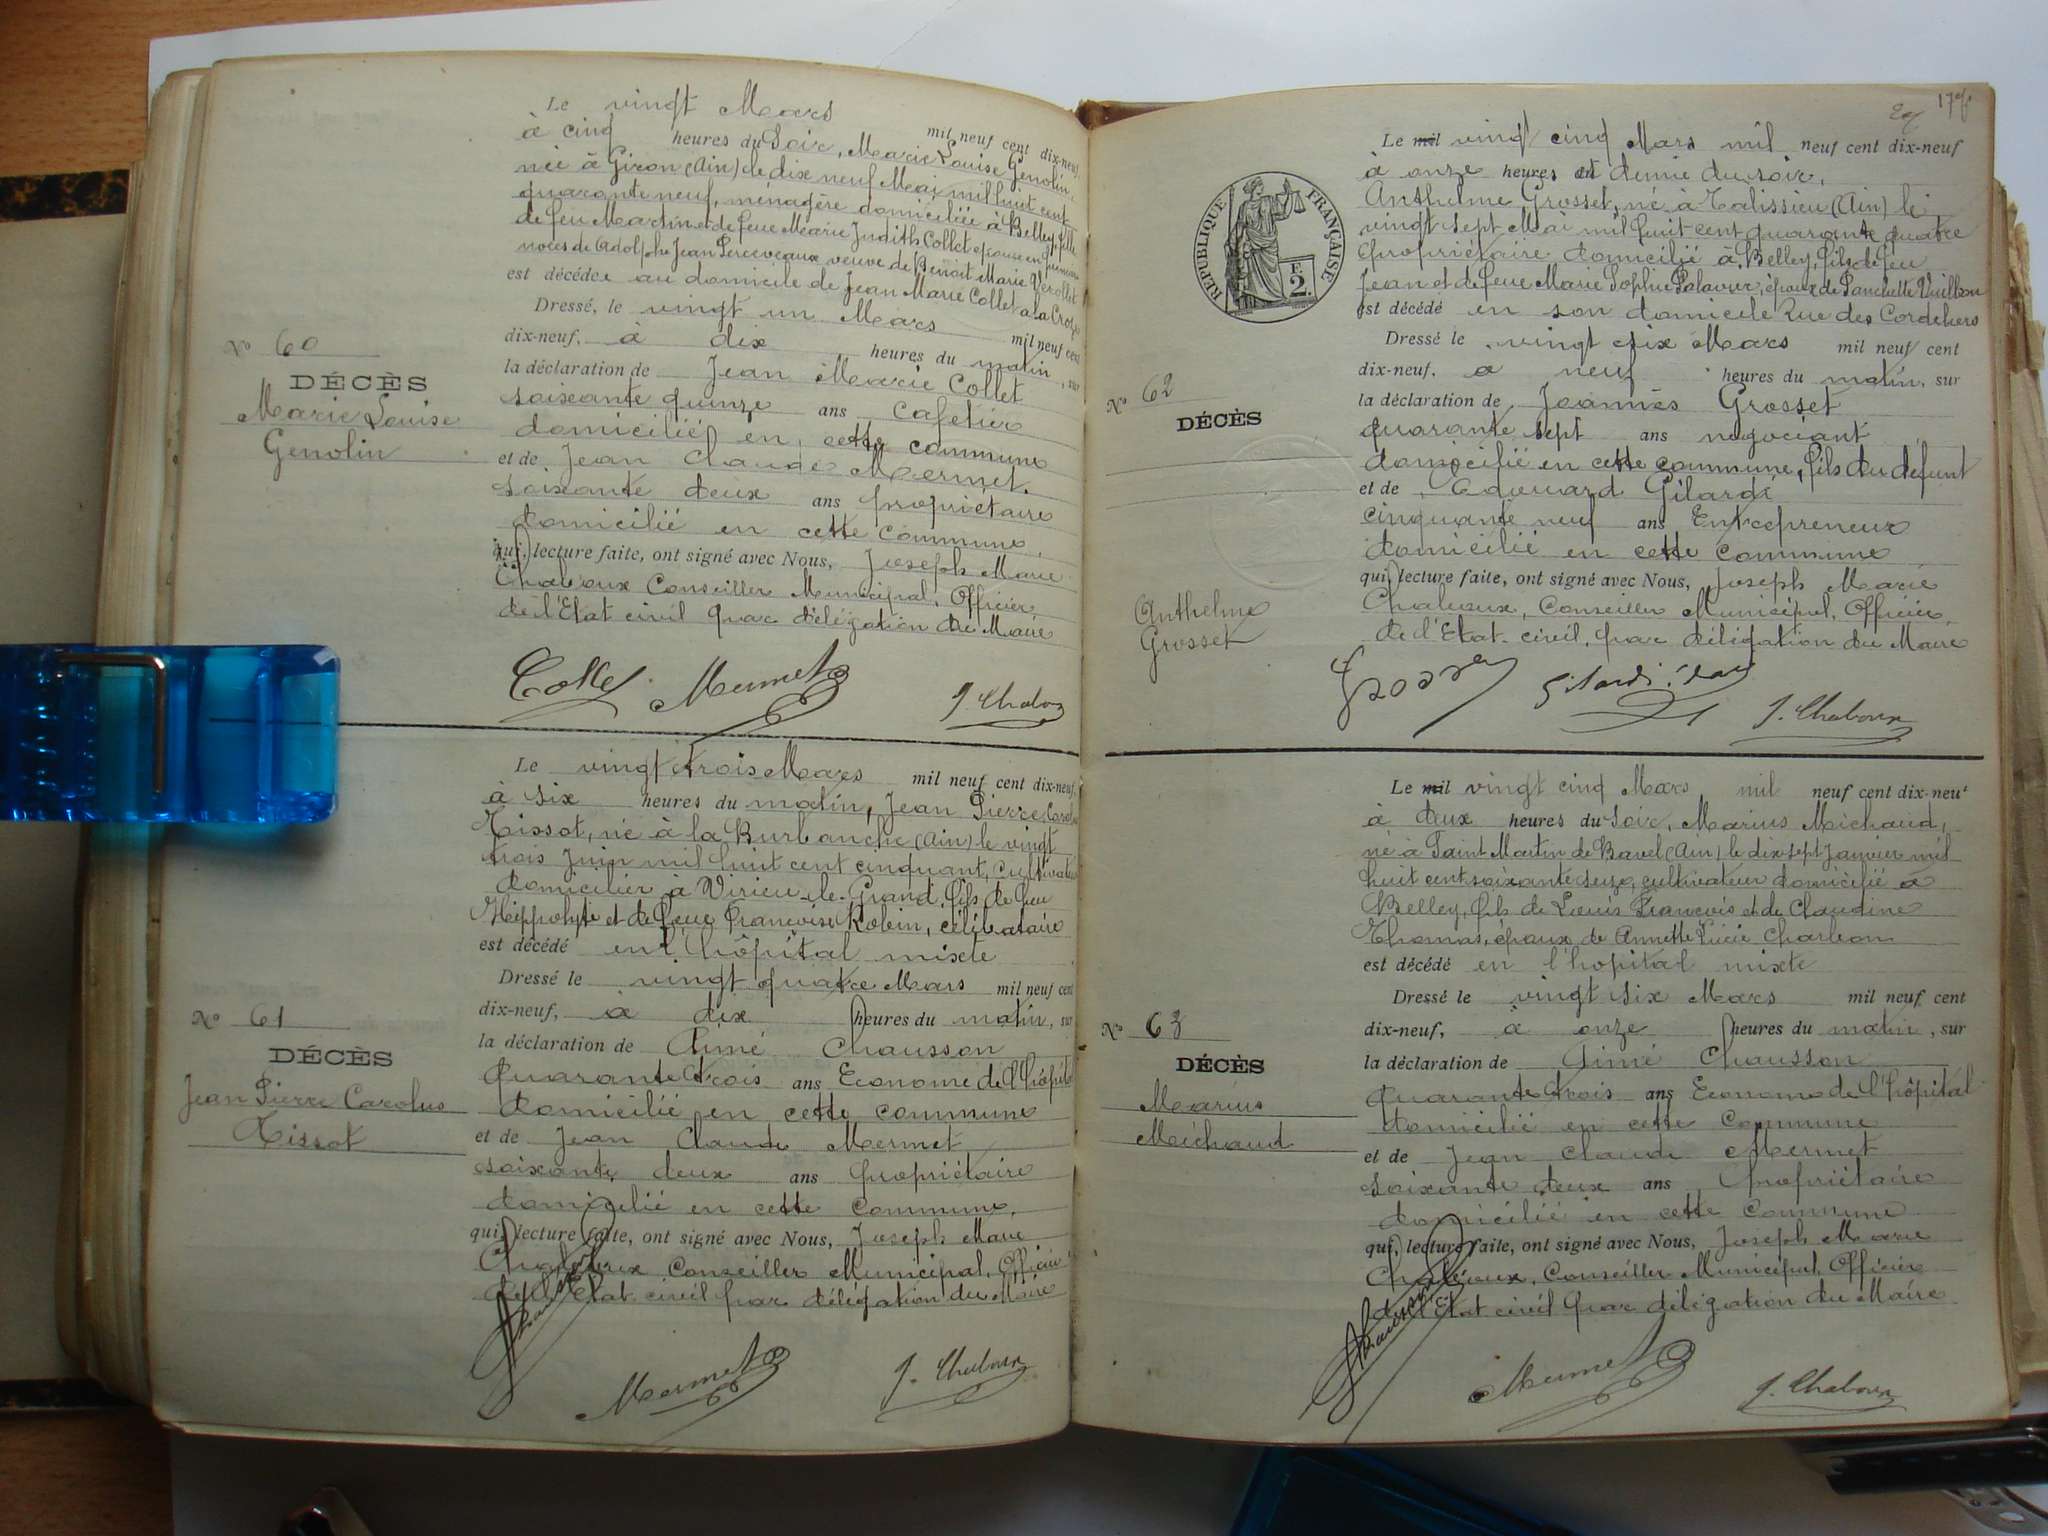 Le vingt Mars mil neuf cent dix-neuf
à cinq heures du Soir, Marie Louise Genolin
née à Giron (Ain) le dix neuf Mai mil huit cent
quarante neuf, ménagère domiciliée à Belley, fille
de feu Martin et de feue Marie Judith Collet épouse en premières
noces de Adolphe Jean Perceveaux veuve de Benoit Marie Verollet
est décédée au domicile de Jean Marie Collet a la Croze
Dressé, le vingt un Mars mil neuf cent
dix-neuf, à dix heures du matin, sur
la déclaration de Jean Marie Collet
soixante quinze ans Cafetier
domicilié en cette commune
et de Jean Claude Mermet
soixante deux ans propriétaire
domicilié en cette commune,
qui, lecture faite, ont signé avec Nous, Joseph Marie
Chaboux Conseiller Municipal, Officier
de l'Etat civil par délégation du Maire
N° 60
DÉCÈS
Marie Louise
Genolin
Collet Mermet J. Chaboux
Le vingt trois Mars mil neuf cent dix-neuf,
à six heures du matin, Jean Pierre Carolus
Tissot, né à la Burbanche (Ain) le vingt
trois Juin mil huit cent cinquant, cultivateur
domicilier à Virieu-le-Grand, fils de feu
Hippolyte et de feue Francoise Robin, célibataire
est décédé en l'hôpital mixte
Dressé le vingt quatre Mars mil neuf cent
dix-neuf, à dix heures du matin, sur
la déclaration de Aimé Chausson
quarante trois ans Econome de l'hôpital
domicilié en cette commune
et de Jean Claude Mermet
soixante deux ans propriétaire
domicilié en cette commune,
qui, lecture faite, ont signé avec Nous, Joseph Marie
Chaboux Conseiller Municipal, Officier
de l'Etat civil par délégation du Maire
N° 61
DÉCÈS
Jean Pierre Carolus
Tissot
Chausson Mermet J. Chaboux
179
RÉPUBLIQUE FRANÇAISE
F.
2.
Le mil vingt cinq Mars mil neuf cent dix-neuf
à onze heures et demie du soir,
Anthelme Grosset, né à Talissieu (Ain) le
vingt sept Mai mil huit cent quarante quatre
propriétaire domicilié à Belley, fils de feu
Jean et de feue Marie Sophie Palavier, époux de Pauchette
est décédé en son domicile Rue des Cordeliers
Dressé le vingt six Mars mil neuf cent
dix-neuf, a neuf heures du matin, sur
la déclaration de Joannès Grosset
quarante sept ans négociant
domicilié en cette commune, fils du défunt
et de Edouard Gilardi
cinquante neuf ans Entrepreneur
domicilié en cette commune
qui, lecture faite, ont signé avec Nous, Joseph Marie
Chaboux, Conseiller Municipal, Officier
de l'Etat-civil, par délégation du Maire
N° 62
DÉCÈS
Anthelme
Grosset
Grosset Gilardi J. Chaboux
Le mil vingt cinq Mars mil neuf cent dix-neuf
à deux heures du soir, Marius Michaud,
né à Saint Martin de Bavel (Ain) le dix sept Janvier mil
huit cent soixante seize, cultivateur domicilié à
Belley, fils de Louis Francois et de Claudine
Thomas, époux de Annette Lucie Charleon
est décédé en l'hopital mixte
Dressé le vingt six Mars mil neuf cent
dix-neuf, à onze heures du matin, sur
la déclaration de Aimé Chausson
quarante trois ans Econome de l'hôpital
domicilié en cette commune
et de Jean Claude Mermet
soixante deux ans propriétaire
domicilié en cette commune
qui, lecture faite, ont signé avec Nous, Joseph Marie
Chaboux, Conseiller Municipal, Officier
de l'Etat civil par délégation du Maire
N° 63
DÉCÈS
Marius
Michaud
Chausson Mermet J. Chaboux